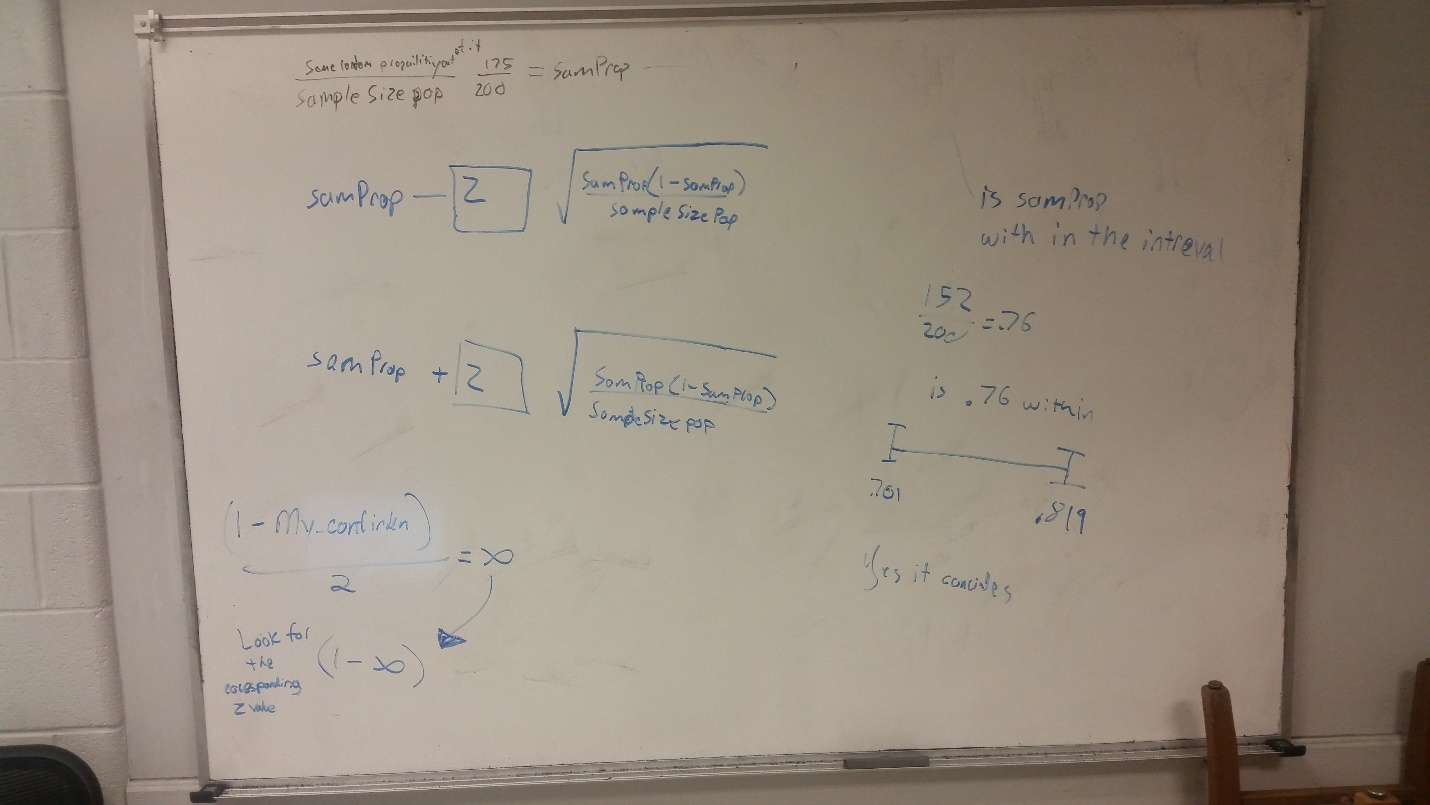 Some random propailitiyout of it 175
Sample Size pop 200 = SamProp
samProp — Z √ SamProp(1-SamProp)
Sample Size Pop
samProp + Z √ SamProp(1-SamProp)
SampleSize pop
(1 - My_confinden)
2 = ∞
Look for
the
Z value
(1 - ∞)
is samProp
with in the intreval
152
200 = .76
is .76 within
.701
.819
Yes it